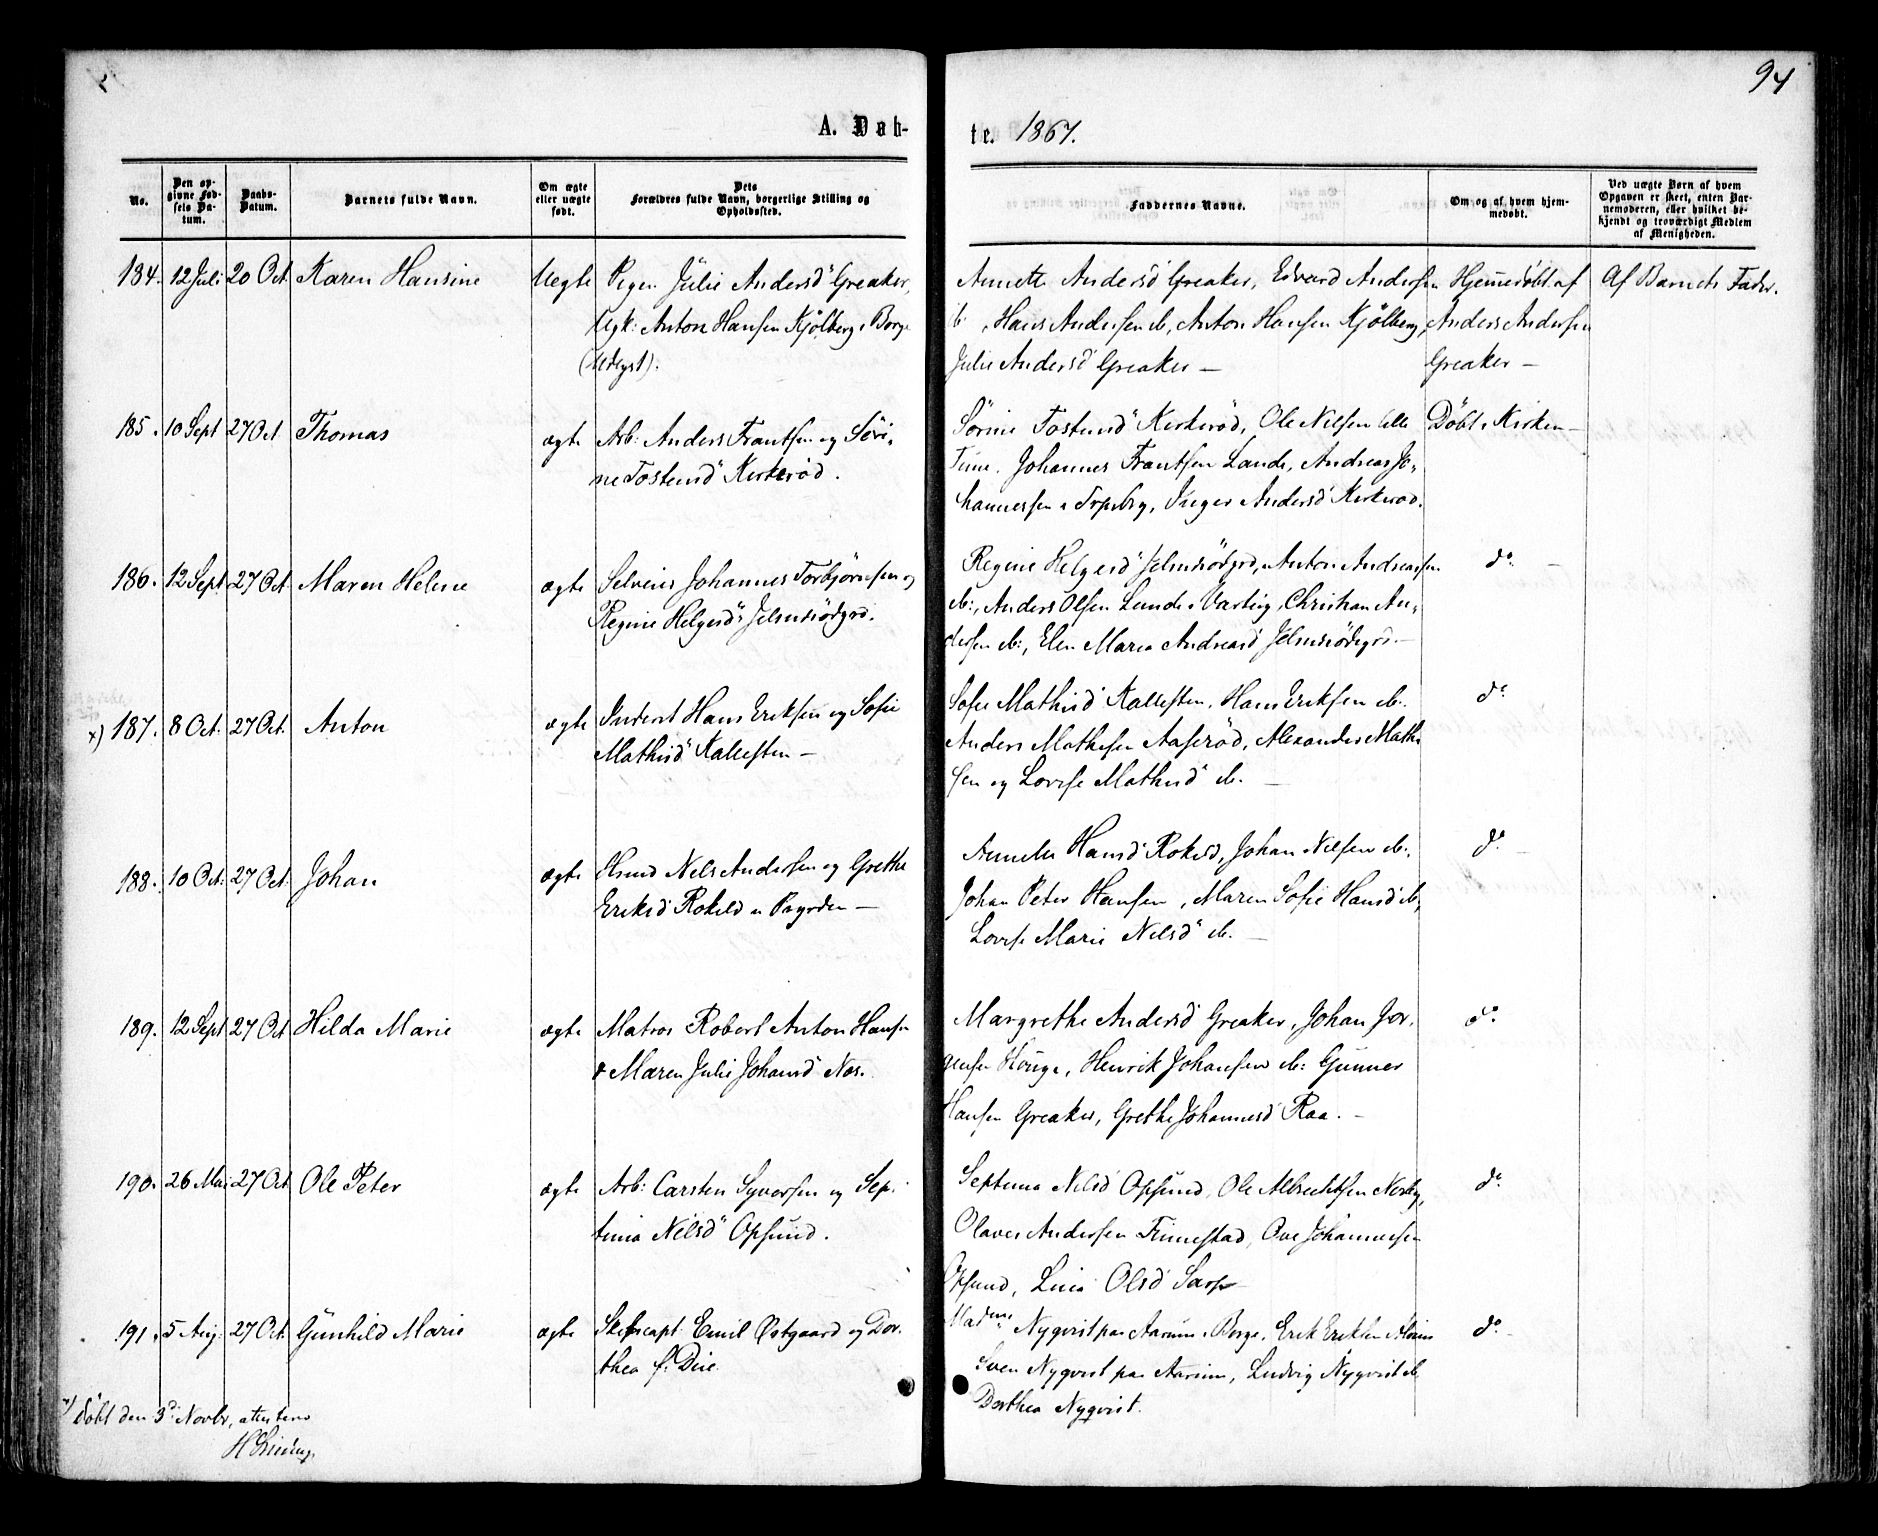 94
A. Døb-
te. 1867.
No.
Den op-
givne Fød-
sels Da-
tum.
Daabs-
Datum.
Barnets fulde Navn.
Om ægte
eller uægte
født.
Dets
Forældres fulde Navn, borgerlige Stilling og
Opholdssted.
Faddernes Navne.
Om og af hvem hjem-
medøbt.
Ved uægte Børn af hvem
Opgaven er skeet, enten Bar-
nemoderen, eller hvilket be-
kjendt og troværdigt Medlem
af Menigheden.
184. 12 Juli 20 Oct. Karen Hansine Uegte Pigen Julie Andersd Greaker,
Ugk: Anton Hansen Kjölberg i Borge
Annette Andersd Greaker, Edvard Andersen
Hans Andersen ib, Anton Hansen Kjölberg,
Julie Andersd Greaker —
Hjemmedöbt af
Anders Andersen
Greaker —
Af Barnets Fader.
185. 10 Sept 27 Oct Thomas ægte Arb: Anders Frantsen og Söri-
ne Tostensd Kirkeröd.
Sörine Tostensd Kirkeröd, Ole Nilsen lille
Tune. Johannes Frantsen Lande, Andreas Jo-
hannessen, Inger Andersd Kirkeröd.
Döbt i Kirken —
186. 12 Sept 27 Oct. Maren Helene ægte Selveier Johannes Torbjörnsen og
Regine Helgesd
Regine Helgesd, Anton Andreassen
ib:, Anders Olsen Lunde i Varteig, Christian An-
dersen ib:, Elen Maria Andreasd
do. —
x) 187. 8 Oct. 27 Oct. Anton ægte Inderst Hans Eriksen og Sofie
Mathisd Kallesten —
Sofie Mathisd Kallesten, Hans Eriksen ib.
Anders Mathesen Aaseröd, Alexander Mathi
sen og Lovise Mathisd ib. —
do
188. 10 Oct: 27 Oct. Johan ægte Nels Andersen og Grethe
Eriksd Rokeld
Annette Hansd Rokeld, Johan Nilsen ib.,
Johan Peter Hansen, Maren Sofie Hansd ib,
Lovise Marie Nelsd ib. —
do —
189. 12 Sept 27 Oct Hilda Marie ægte Matros Robert Anton Hansen
& Maren Julie Johansd Nes.
Margrethe Andersd Greaker, Johan Jör-
gensen Houge, Henrik Johansen ib: Gunner
Hansen Greaker, Grethe Johannesd Raa. —
do.
190. 26 Mai 27 Oct Ole Peter ægte Arb: Carsten Syversen og Sep-
tima Nilsd Opsund.
Septima Nilsd Opsund, Ole Albrechtsen Nesby,
Olaves Andersen Tunestad, Ove Johannessen
Opsund, Lina Olsd Sarp
do
191. 5 Aug. 27 Oct. Gunhild Marie ægte Skibscapt: Emil Østgaard og Dor-
thea f: Due
Madme Nyqvist paa Aarum i Borge, Erik Eriksen
Sven Nyqvist paa Aarum, Ludvig Nyqvist ib
Dorthea Nyqvist.
do. —
x) Döbt den 3d Novbr, attesteres